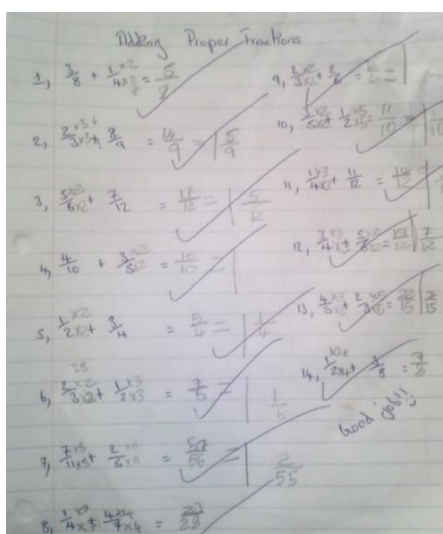 Adding Proper Fractions
1, 3/8 + 1×2/4×2 = 5/8
2, 2×3/3×3 + 8/9 = 14/9 = 1 5/9
3, 5×2/6×2 + 7/12 = 17/12 = 1 5/12
4, 4/10 + 3×2/5×2 = 10/10 = 1
5, 1×2/2×2 + 3/4 = 5/4 = 1 1/4
6, 2×2/3×2 + 1×3/2×3 = 7/6 = 1 1/6
7, 7×5/11×5 + 2×11/5×11 = 57/55 = 1 2/55
8, 1×7/4×7 + 4×4/7×4 = 23/28
9, 2×2/3×2 + 2/6 = 6/6 = 1
10, 3×2/5×2 + 1×5/2×5 = 11/10 = 1 1/10
11, 1×3/4×3 + 11/12 = 14/12 = 1
12, 3×3/4×3 + 5×2/6×2 = 19/12 1 7/12
13, 4×3/5×3 + 2×5/3×5 = 22/15 1 7/15
14, 1×4/2×4 + 3/8 = 7/8
Good job!!